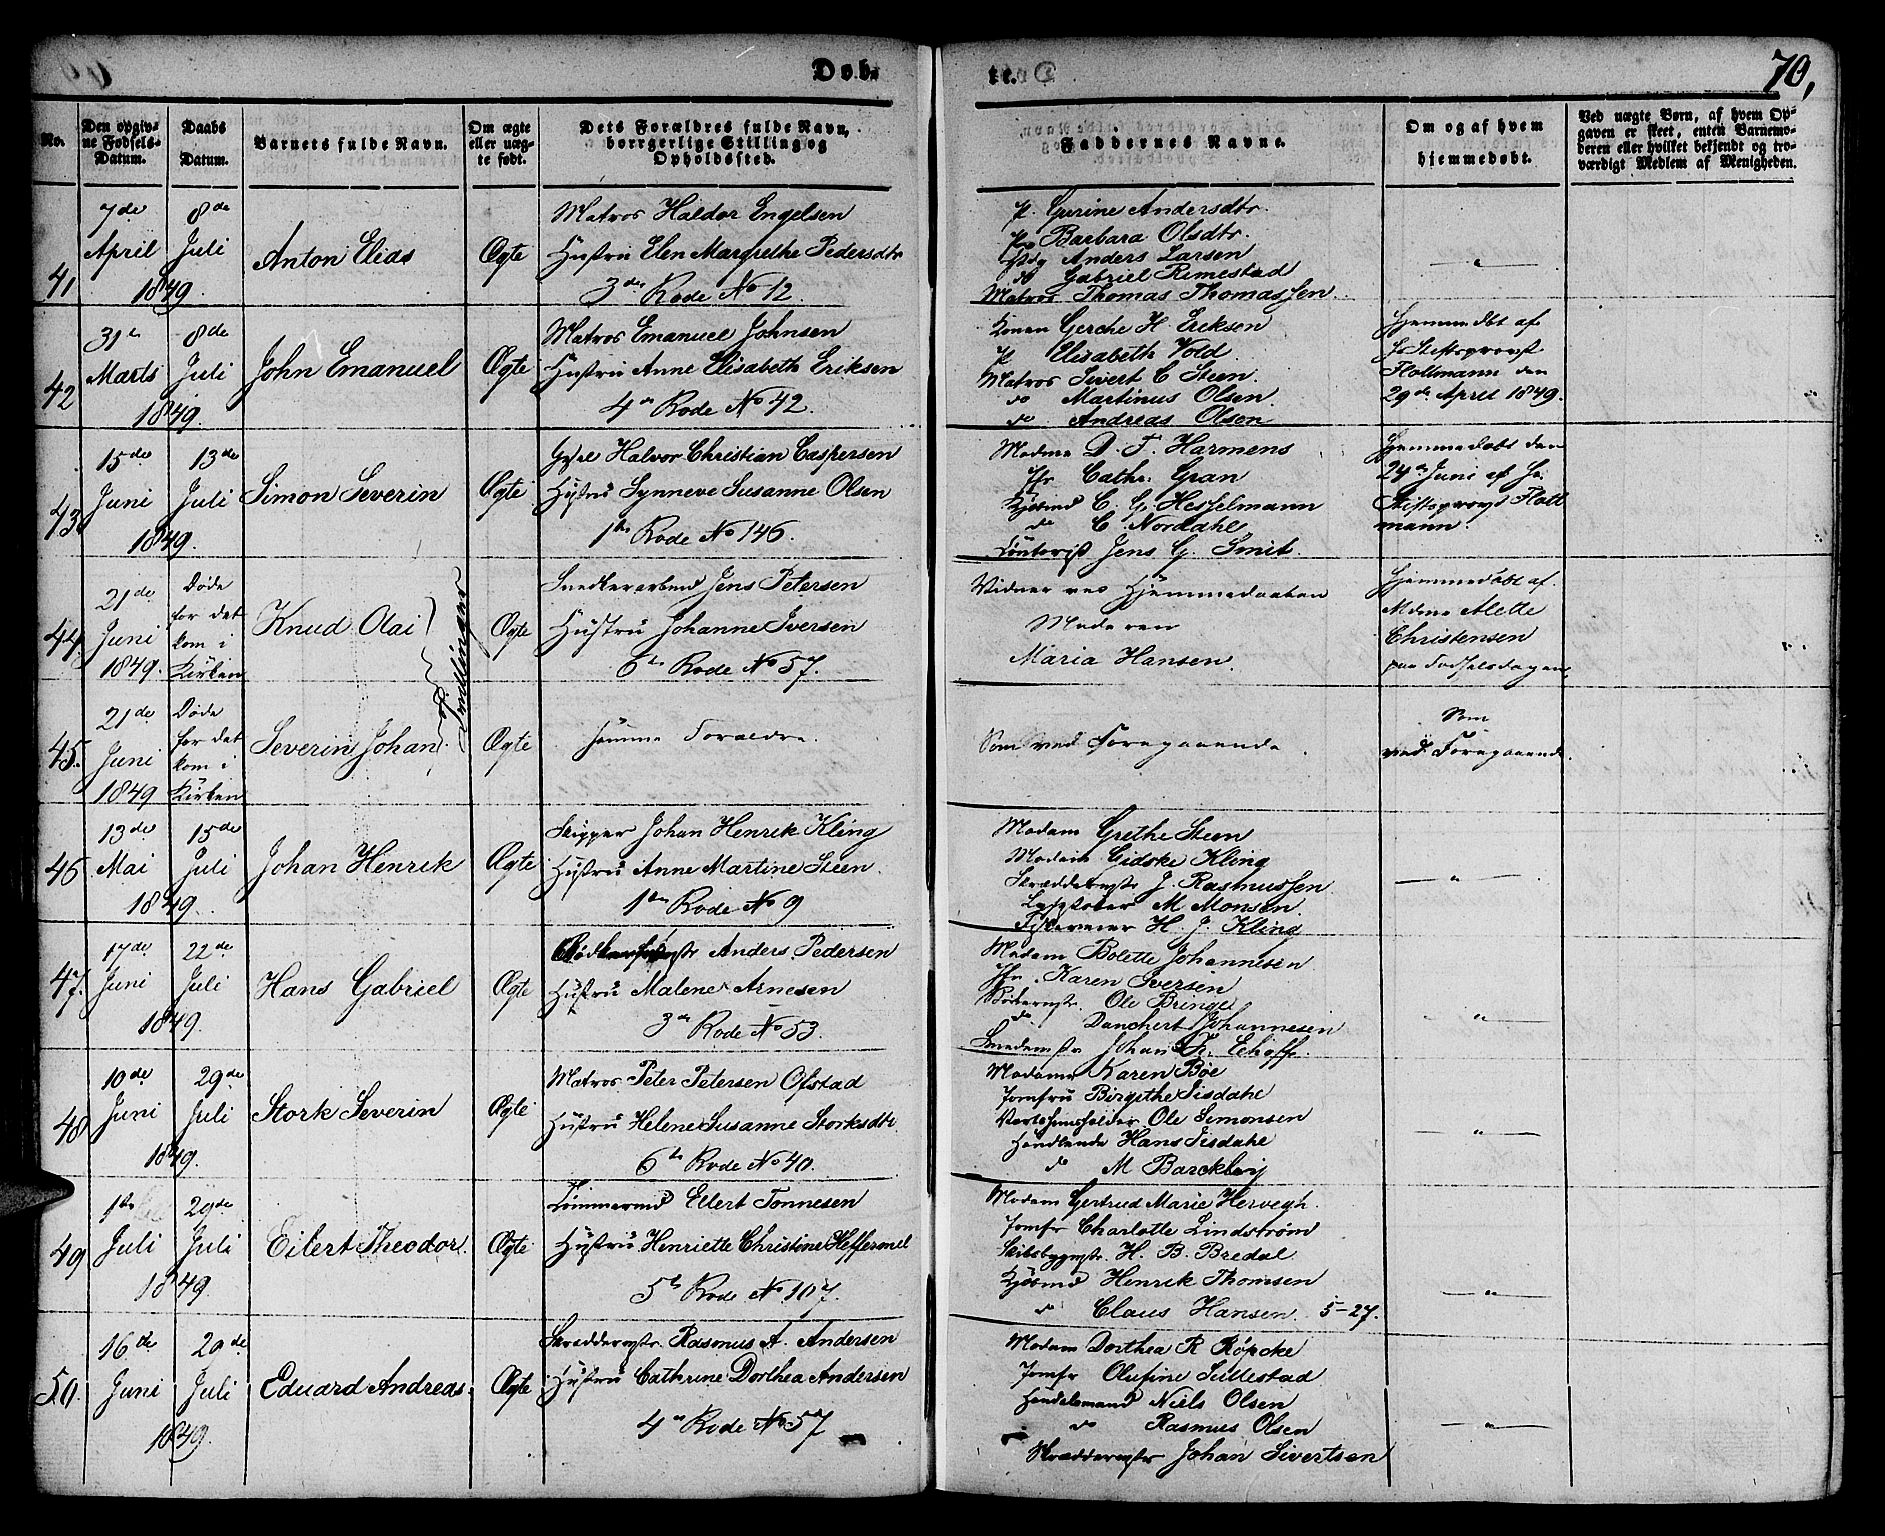 Døb-
te.
70,
No.
Den opgiv-
ne Fødsels-
Datum.
Daabs
Datum.
Barnets fulde Navn.
Om ægte
eller uæg-
te født.
Dets Forældres fulde Navn,
borgerlige Stilling og
Opholdssted.
Faddernes Navne.
Om og af hvem
hjemmedøbt.
Ved uægte Børn, af hvem Op-
gaven er skeet, enten Barnemo-
deren eller hvilket bekjendt og tro-
værdigt Medlem af Menigheden.
41
7de
April
8de
Juli
1849.
Anton Elias
Ægte
Matros Haldor Engelsen
Hustru Elen Margrethe Pedersdtr
3de Rode No 12.
P. Gurine Andersdtr.
P. Barbara Olsdtr.
Anders Larsen
do Gabriel Rimestad
Matros Thomas Thomassen.
— " —
42
31te
Marts
8de
Juli
1849.
John Emanuel
Ægte
Matros Emanuel Johnsen
Hustru Anne Elisabeth Eriksen
4de Rode No 42.
Konen Gerche H. Eriksen
P. Elisabeth Vold.
Matros Sivert C Steen.
do Martinus Olsen.
do Andreas Olsen
Hjemmedøbt af
Hr Stiftsprovst
Holtmann den
29de April 1849.
43
15de
Juni
13de
Juli
1849.
Simon Severin
Ægte
Halvor Christian Caspersen
Hustru Synneve Susanne Olsen
1ste Rode No 146.
Madme D. T. Harmens
Jfr Cathr. Gran
Kjøbmd C. G. Hesselmann
do C Nordahl
Jens G. Smit.
Hjemmedøbt den
24de Juni af Hr.
Stiftsprovst Holt
mann.
44
21de
Juni
1849.
Døde
før det
kom i
Kirken
Knud Olai
Tvillinger
Ægte
Snedkerarbmd Jens Petersen
Hustru Johanne Iversen
6te Rode No 57.
Vidner ved Hjemmedaaben
Moderen
Maria Hansen.
Hjemmedøbt af
Mdme Alette
Christensen
paa Fødselsdagen.
45.
21de
Juni
1849
Døde
før det
kom i
Kirken
Severin Johan.
Ægte
Samme Forældre.
Som ved Foregaaende.
Som
ved Foregaaende
46
13de
Mai
15de
Juli
1849.
Johan Henrik
Ægte
Skipper Johan Henrik Kling
Hustru Anne Martine Steen.
1ste Rode No 9
Madam Grethe Steen
Madam Gidske Kling
Skræddermstr J. Rasmussen
M Monsen.
H. J. Kling
— " —
47.
17de
Juni
22de
Juli
1849.
Hans Gabriel
Ægte
Anders Pedersen
Hustru Malene Arnesen
3de Rode No 53.
Madam Bolette Johannesen
Jfr. Karen Iversen
Bødkermstr. Ole Bringe
do Danchert Johannesen
Smedemstr Johan Fr. Echoff.
— " —
48
10de
Juni
29de
Juli
1849.
Stork Severin
Ægte
Matros Peter Petersen Ofstad
Hustru Helene Susanne Storksdtr.
6te Rode No 40.
Madame Karen Bøe
Jomfru Birgithe Sisdahl
Vertshuusholder Ole Simonsen
Handlende Hans Sisdahl
do M Barckley
— " —
49
1ste
Juli
29de
Juli
1849
Eilert Theodor.
Ægte
Tømmermd Ellert Tonnesen
Hustru Henriette Christine Heffermel
5te Rode No 107.
Madam Gertrud Marie Hervegh.
Jomfr Charlotte Lindstrøm
Skibsbygmstr. H. B. Bredal
Kjøbmd Henrik Thomsen
do Claus Hansen. 5-27.
— " —
50.
16de
Juni
29de
Juli
1849.
Eduard Andreas.
Ægte
Skræddermstr. Rasmus A. Andersen
Hustru Cathrine Dorthea Andersen
4de Rode No 57
Madam Dorthea R Röpcke
Jomfr Olufine Sullestad
Handelsmand Niels Olsen
do Rasmus Olsen
Skræddermstr Johan Sivertsen
— " —